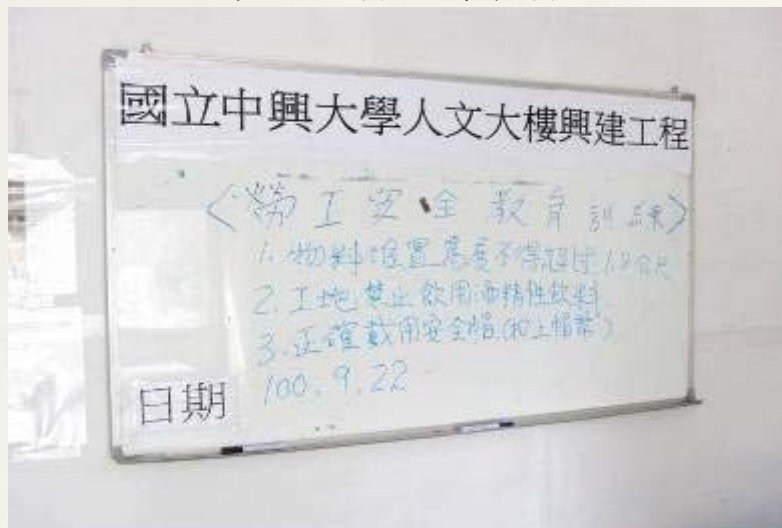 國立中興大學人文大樓興建工程
<勞工安全教育訓練>
1. 物料堆置高度不得超過1.8公尺
2. 工地禁止飲用酒精性飲料
3. 正確戴用安全帽(扣上帽帶)
日期 100.9.22